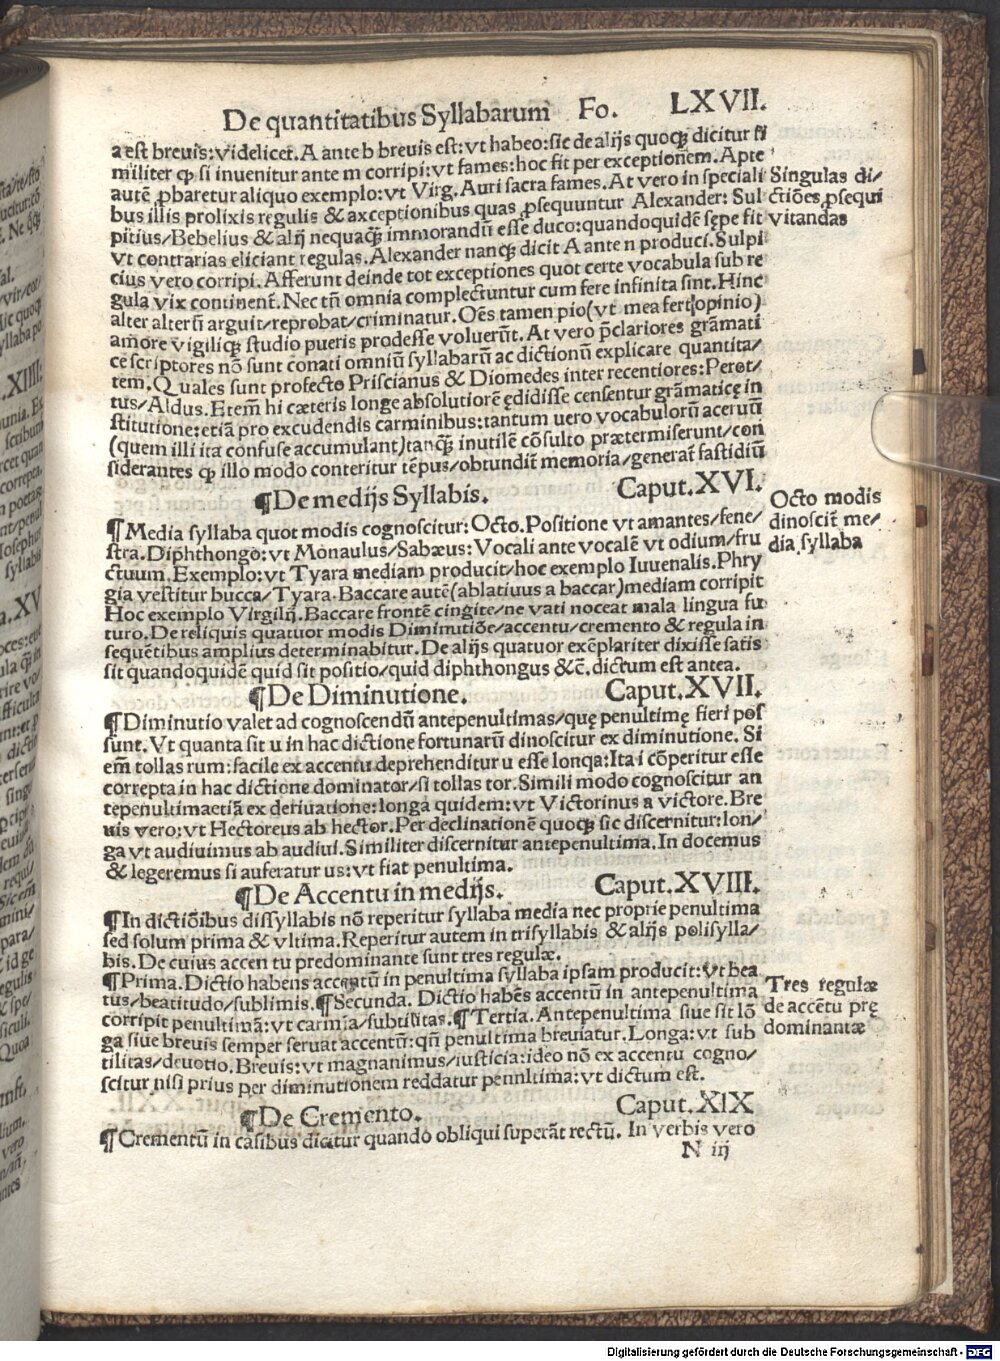 De quantitatibus Syllabarum Fo. LXVII.
a est breuis: videlicet. A ante b breuis est: vt habeo: sic de alijs quoqʒ dicitur si
militer ꝙ si inuenitur ante m corripi: vt fames: hoc fit per exceptionem. Apte
autē ꝓbaretur aliquo exemplo: vt Virg. Auri sacra fames. At vero in speciali
bus illis prolixis regulis & axceptionibus quas ꝓsequuntur Alexander: Sul
pitius/Bebelius & alij nequaqʒ immorandū esse duco: quandoquidē sępe fit
vt contrarias eliciant regulas. Alexander nanqʒ dicit A ante n produci. Sulpi
cius vero corripi. Afferunt deinde tot exceptiones quot certe vocabula sub re
gula vix continent̄. Nec tn̄ omnia complectuntur cum fere infinita sint. Hinc
alter alterū arguit/reprobat/criminatur. Oēs tamen pio (vt mea fert opinio)
amore vigiliqʒ studio pueris prodesse voluerūt. At vero p̄clariores grāmati
ce scriptores nō sunt conati omniū syllabarū ac dictionū explicare quantita/
tem. Quales sunt profecto Priscianus & Diomedes inter recentiores: Perot/
tus/Aldus. Etem̄ hi cæteris longe absolutiorē ędidisse censentur grāmaticę in
stitutione: etiā pro excudendis carminibus: tantum uero vocabulorū aceruū
(quem illi ita confuse accumulant) tanqʒ inutilē cōsulto prætermiserunt/con
siderantes ꝙ illo modo conteritur tēpus/obtundit̄ memoria/generat̄ fastidiū
Singulas di/
ctiōes ꝓsequi
vitandas
¶De medijs Syllabis. Caput.XVI.
¶Media syllaba quot modis cognoscitur: Octo. Positione vt amantes/fene/
stra. Diphthongo: vt Monaulus/Sabæus: Vocali ante vocalē vt odium/fru
ctuum. Exemplo: vt Tyara mediam producit/hoc exemplo Iuuenalis. Phry
gia vestitur bucca/Tyara. Baccare autē (ablatiuus a baccar) mediam corripit
Hoc exemplo Virgilij. Baccare frontē cingite/ne vati noceat mala lingua fu
turo. De reliquis quatuor modis Diminutiōe/accentu/cremento & regula in
sequētibus amplius determinabitur. De alijs quatuor exēplariter dixisse satis
sit quandoquidē quid sit positio/quid diphthongus &c̄. dictum est antea.
Octo modis
dinoscit̄ me/
dia syllaba
¶De Diminutione. Caput.XVII.
¶Diminutio valet ad cognoscendū antepenultimas/quę penultimę fieri pos
sunt. Vt quanta sit u in hac dictione fortunarū dinoscitur ex diminutione. Si
em̄ tollas rum: facile ex accentu deprehenditur u esse longa: Ita i cōperitur esse
correpta in hac dictione dominator/si tollas tor. Simili modo cognoscitur an
tepenultima etiā ex deriuatione: longa quidem: vt Victorinus a victore. Bre
uis vero: vt Hectoreus ab hector. Per declinationē quoqʒ sic discernitur: lon/
ga vt audiuimus ab audiui. Similiter discernitur antepenultima. In docemus
& legeremus si auferatur us: vt fiat penultima.
¶De Accentu in medijs. Caput.XVIII.
¶In dictiōibus dissyllabis nō reperitur syllaba media nec proprie penultima
sed solum prima & vltima. Reperitur autem in trisyllabis & alijs polisylla/
bis. De cuius accentu predominante sunt tres regulæ.
¶Prima. Dictio habens accentū in penultima syllaba ipsam producit: Vt bea
tus/beatitudo/sublimis. ¶Secunda. Dictio habēs accentū in antepenultima
corripit penultimā: vt carmīa/subtilitas. ¶Tertia. Antepenultima siue sit lō
ga siue breuis semper seruat accentū: qn̄ penultima breuiatur. Longa: vt sub
tilitas/deuotio. Breuis: vt magnanimus/iusticia: ideo nō ex accentu cogno/
scitur nisi prius per diminutionem reddatur pennltima: vt dictum est.
Tres regulæ
de accētu prę
dominantæ
¶De Cremento. Caput.XIX
¶Crementū in casibus dicitur quando obliqui superāt rectū. In verbis vero
N iij
Digitalisierung gefördert durch die Deutsche Forschungsgemeinschaft - DFG